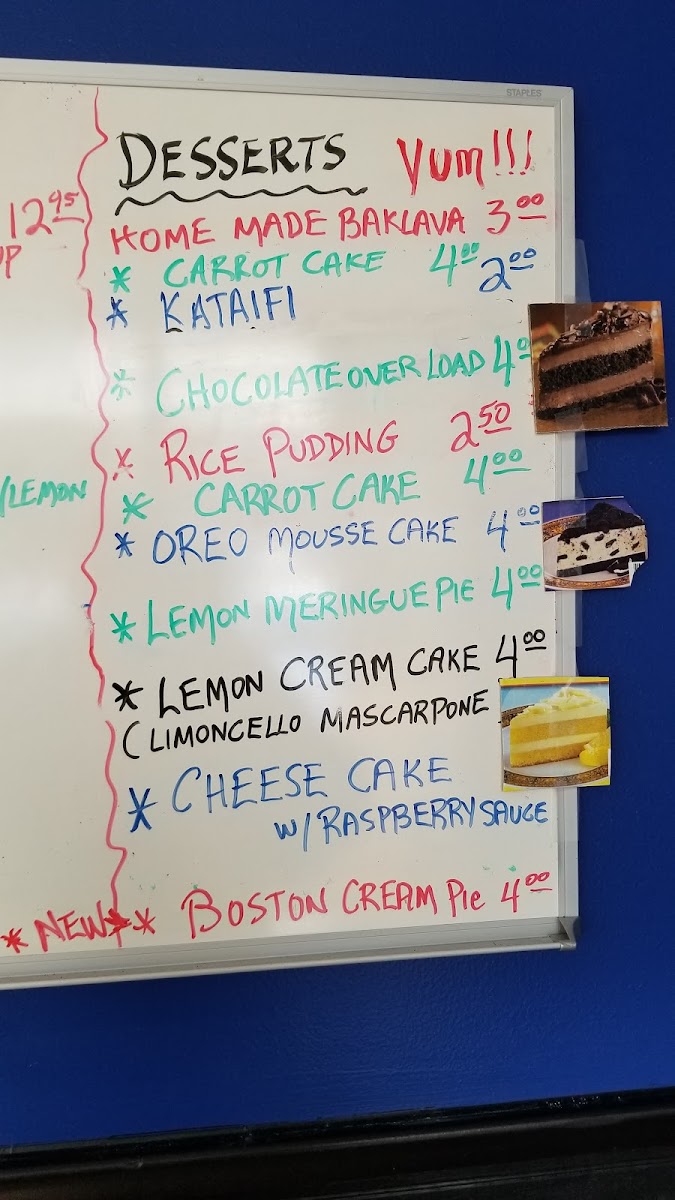 STAPLES
DESSERTS Yum!!!
12 95
UP
HOME MADE BAKLAVA 3 00
* CARROT CAKE 4 00
* KATAIFI 2 00
* CHOCOLATE OVER LOAD 4 00
* RICE PUDDING 2 50
/LEMON
* CARROT CAKE 4 00
* OREO MOUSSE CAKE 4 00
* LEMON MERINGUE PIE 4 00
* LEMON CREAM CAKE 4 00
(LIMONCELLO MASCARPONE
* CHEESE CAKE
W/ RASPBERRY SAUCE
* NEW * * BOSTON CREAM Pie 4 00